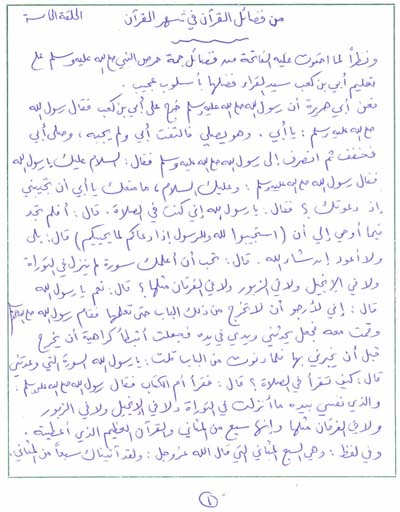 من فضائل القرآن في شهر القرآن
الحلقة الخامسة
ونظراً لما احتوت عليه الفاتحة من فضائل جمة حرص النبي صلى الله عليه وسلم على
تعليم أبي بن كعب سيد القراء فضلها بأسلوب عجيب .
فعن أبي هريرة أن رسول الله صلى الله عليه وسلم خرج على أبي بن كعب فقال رسول الله
صلى الله عليه وسلم : يا أبي . وهو يصلي فالتفت أبي ولم يجبه ، وصلى أبي
فخفف ثم انصرف إلى رسول الله صلى الله عليه وسلم فقال : السلام عليك يا رسول الله
فقال رسول الله صلى الله عليه وسلم : وعليك السلام ، ما منعك يا أبي أن تجيبني
إذ دعوتك ؟ فقال : يا رسول الله إني كنت في الصلاة . قال : أفلم تجد
فيما أوحي إلي أن (استجيبوا لله وللرسول إذا دعاكم لما يحييكم) قال : بلى
ولا أعود إن شاء الله . قال : تحب أن أعلمك سورة لم ينزل في التوراة
ولا في الإنجيل ولا في الزبور ولا في الفرقان مثلها ؟ قال : نعم يا رسول الله
قال : إني لأرجو أن لا تخرج من ذلك الباب حتى تعلمها فقام رسول الله صلى الله عليه وسلم
وقمت معه فجعل يحدثني ويدي في يده فجعلت أتبطأ كراهية أن يخرج
قبل أن يخبرني بها فلما دنوت من الباب قلت : يا رسول الله السورة التي وعدتني
قال : كيف تقرأ في الصلاة ؟ قال : فقرأ أم الكتاب فقال رسول الله صلى الله عليه وسلم :
والذي نفسي بيده ما أنزلت في التوراة ولا في الإنجيل ولا في الزبور
ولا في الفرقان مثلها وإنها سبع من المثاني والقرآن العظيم الذي أعطيته .
وفي لفظ : وهي السبع المثاني التي قال الله عز وجل : ولقد آتيناك سبعاً من المثاني .
١